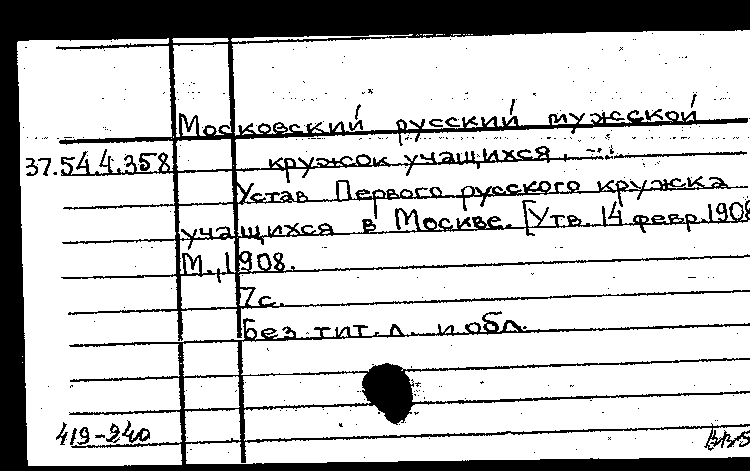 Московский русский мужской
37.54.4.358 кружок учащихся.
Устав Первого русского кружка
учащихся в Москве. [Утв. 14 февр. 1908
М., 1908.
7 с.
Без тит. л. и обл.
419-240